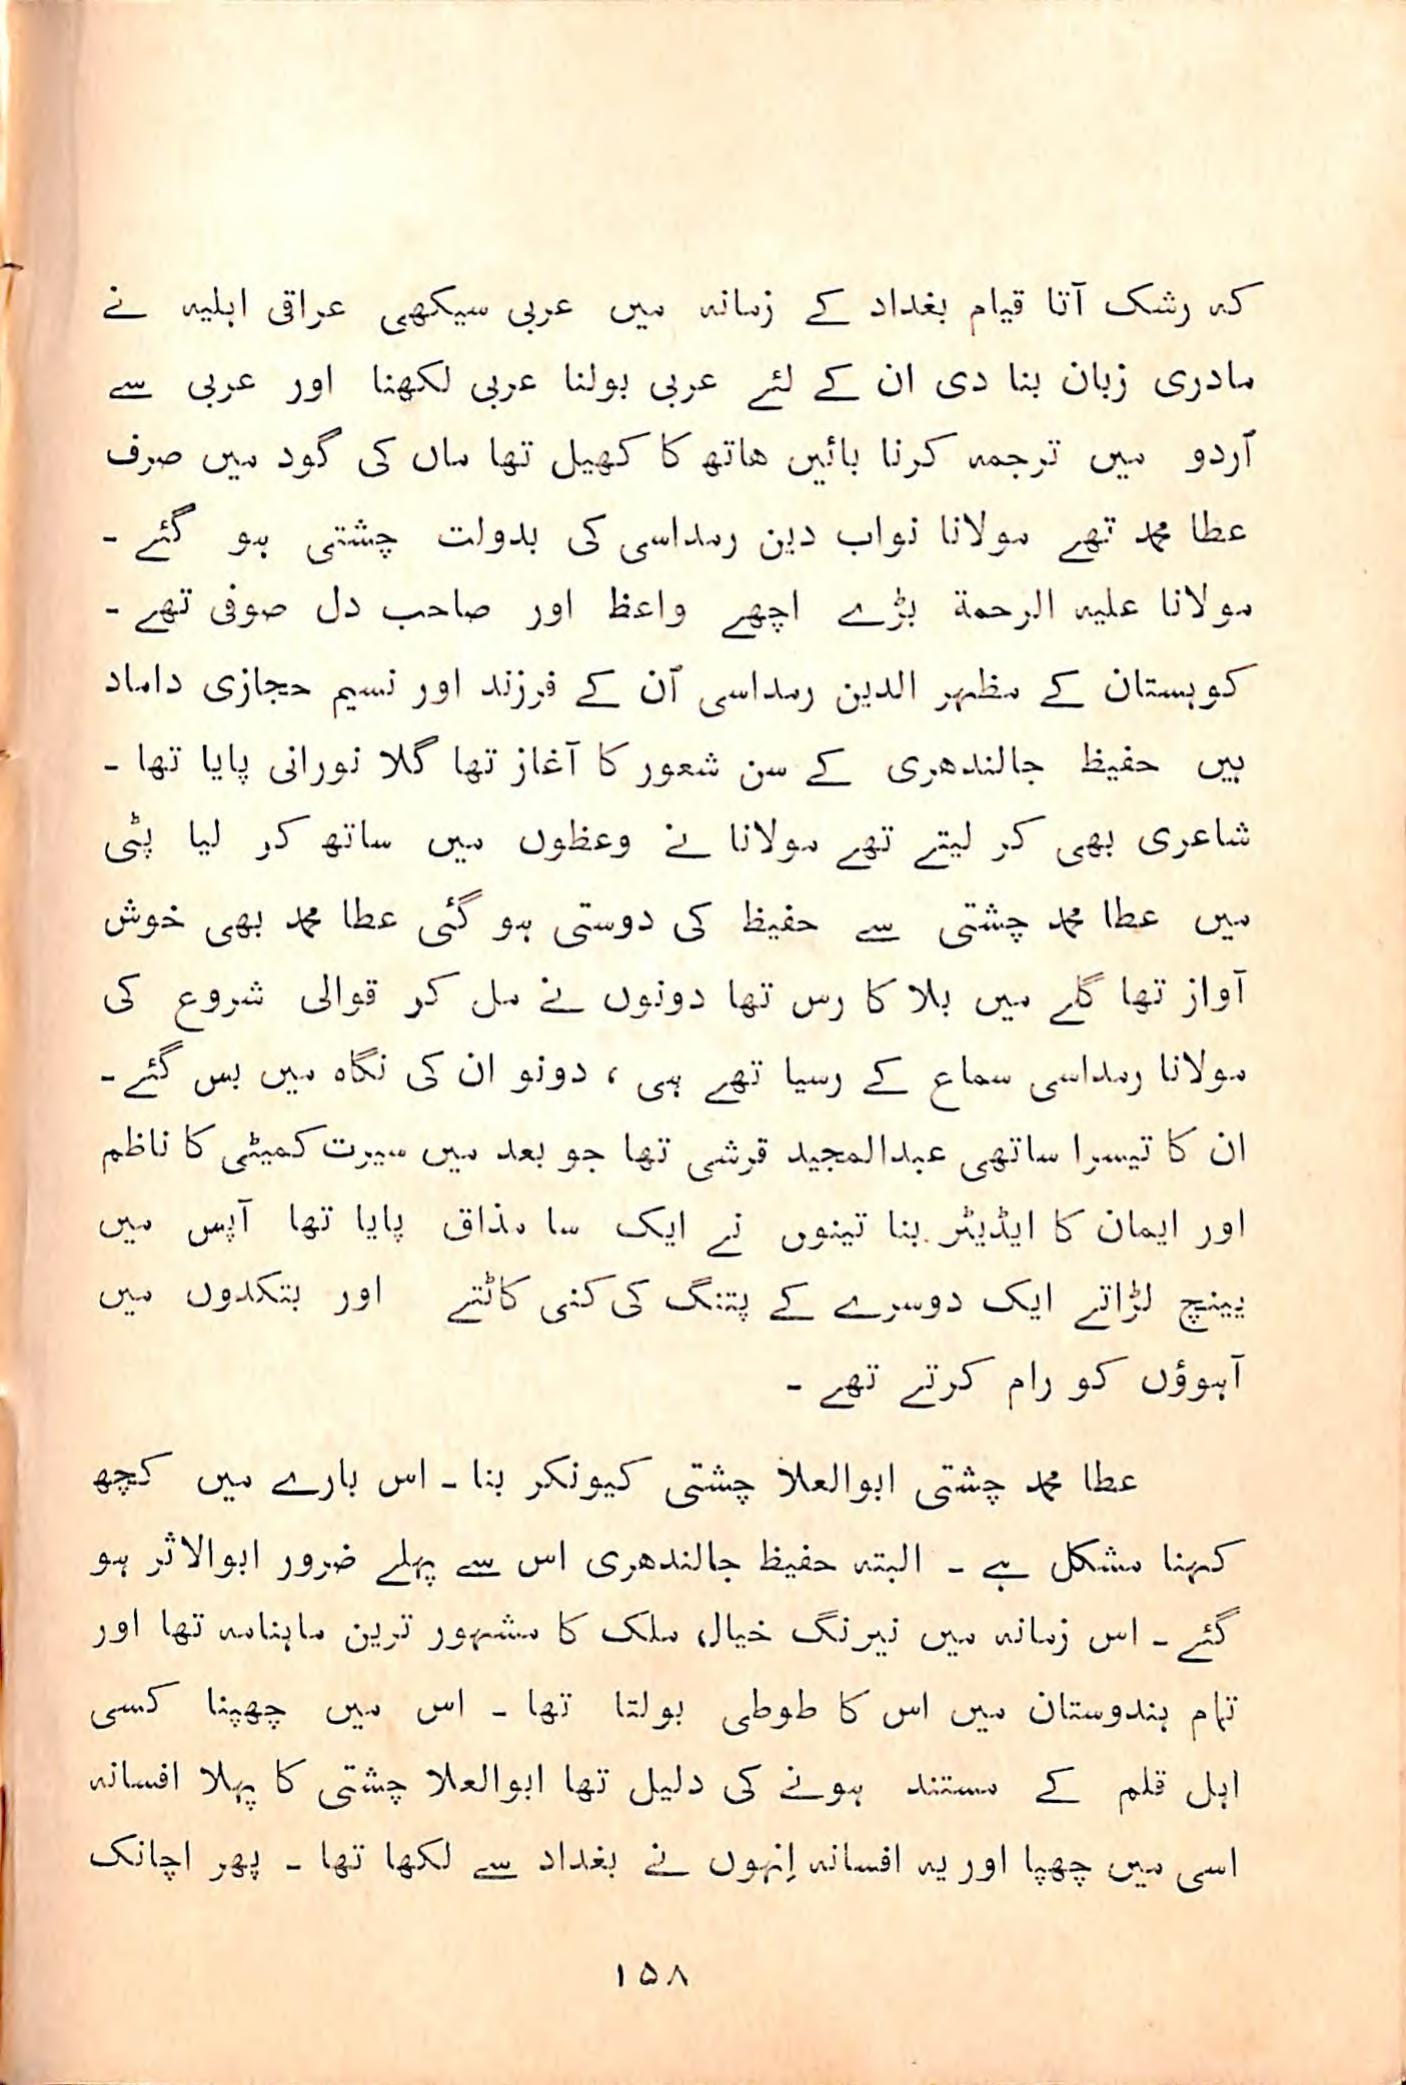 کہ رشک آتا قیام بغداد کے زمانہ میں عربی سیکھی عراقی اہلیہ نے
مادری زبان بنا دی ان کے لئے عربی بولنا عربی لکھنا اور عربی سے
اُردو میں ترجمہ کرنا بائیں ھاتھ کا کھیل تھا ماں کی گود میں صرف
عطا محمد تھے مولانا نواب دین رمداسی کی بدولت چشتی ہو گئے ۔
مولانا علیہ الرحمة بڑے اچھے واعظ اور صاحب دل صوفی تھے ۔
کوہستان کے مظہر الدین رمداسی اُن کے فرزند اور نسیم حجازی داماد
ہیں حفیظ جالندھری کے سن شعور کا آغاز تھا گلا نورانی پایا تھا ۔
شاعری بھی کر لیتے تھے مولانا نے وعظوں میں ساتھ کر لیا پٹی
میں عطا محمد چشتی سے حفیظ کی دوستی ہو گئی عطا محمد بھی خوش
آواز تھا گلے میں بلا کا رس تھا دونوں نے مل کر قوالی شروع کی
مولانا رمداسی سماع کے رسیا تھے ہی ، دونو ان کی نگاہ میں بس گئے ۔
ان کا تیسرا ساتھی عبدالمجید قرشی تھا جو بعد میں سیرت کمیٹی کا ناظم
اور ایمان کا ایڈیٹر بنا تینوں نے ایک سا مذاق پایا تھا آپس میں
پینچ لڑاتے ایک دوسرے کے پتنگ کی کنی کاٹتے اور بتکدوں میں
آہوؤں کو رام کرتے تھے ۔
عطا محمد چشتی ابوالعلا چشتی کیونکر بنا ۔ اس بارے میں کچھ
کہنا مشکل ہے ۔ البتہ حفیظ جالندھری اس سے پہلے ضرور ابوالاثر ہو
گئے ۔ اس زمانہ میں نیرنگ خیال ملک کا مشہور ترین ماہنامہ تھا اور
تمام ہندوستان میں اس کا طوطی بولتا تھا ۔ اس میں چھپنا کسی
اہل قلم کے مستند ہونے کی دلیل تھا ابوالعلا چشتی کا پہلا افسانہ
اسی میں چھپا اور یہ افسانہ اِنہوں نے بغداد سے لکھا تھا ۔ پھر اچانک
۱۵۸